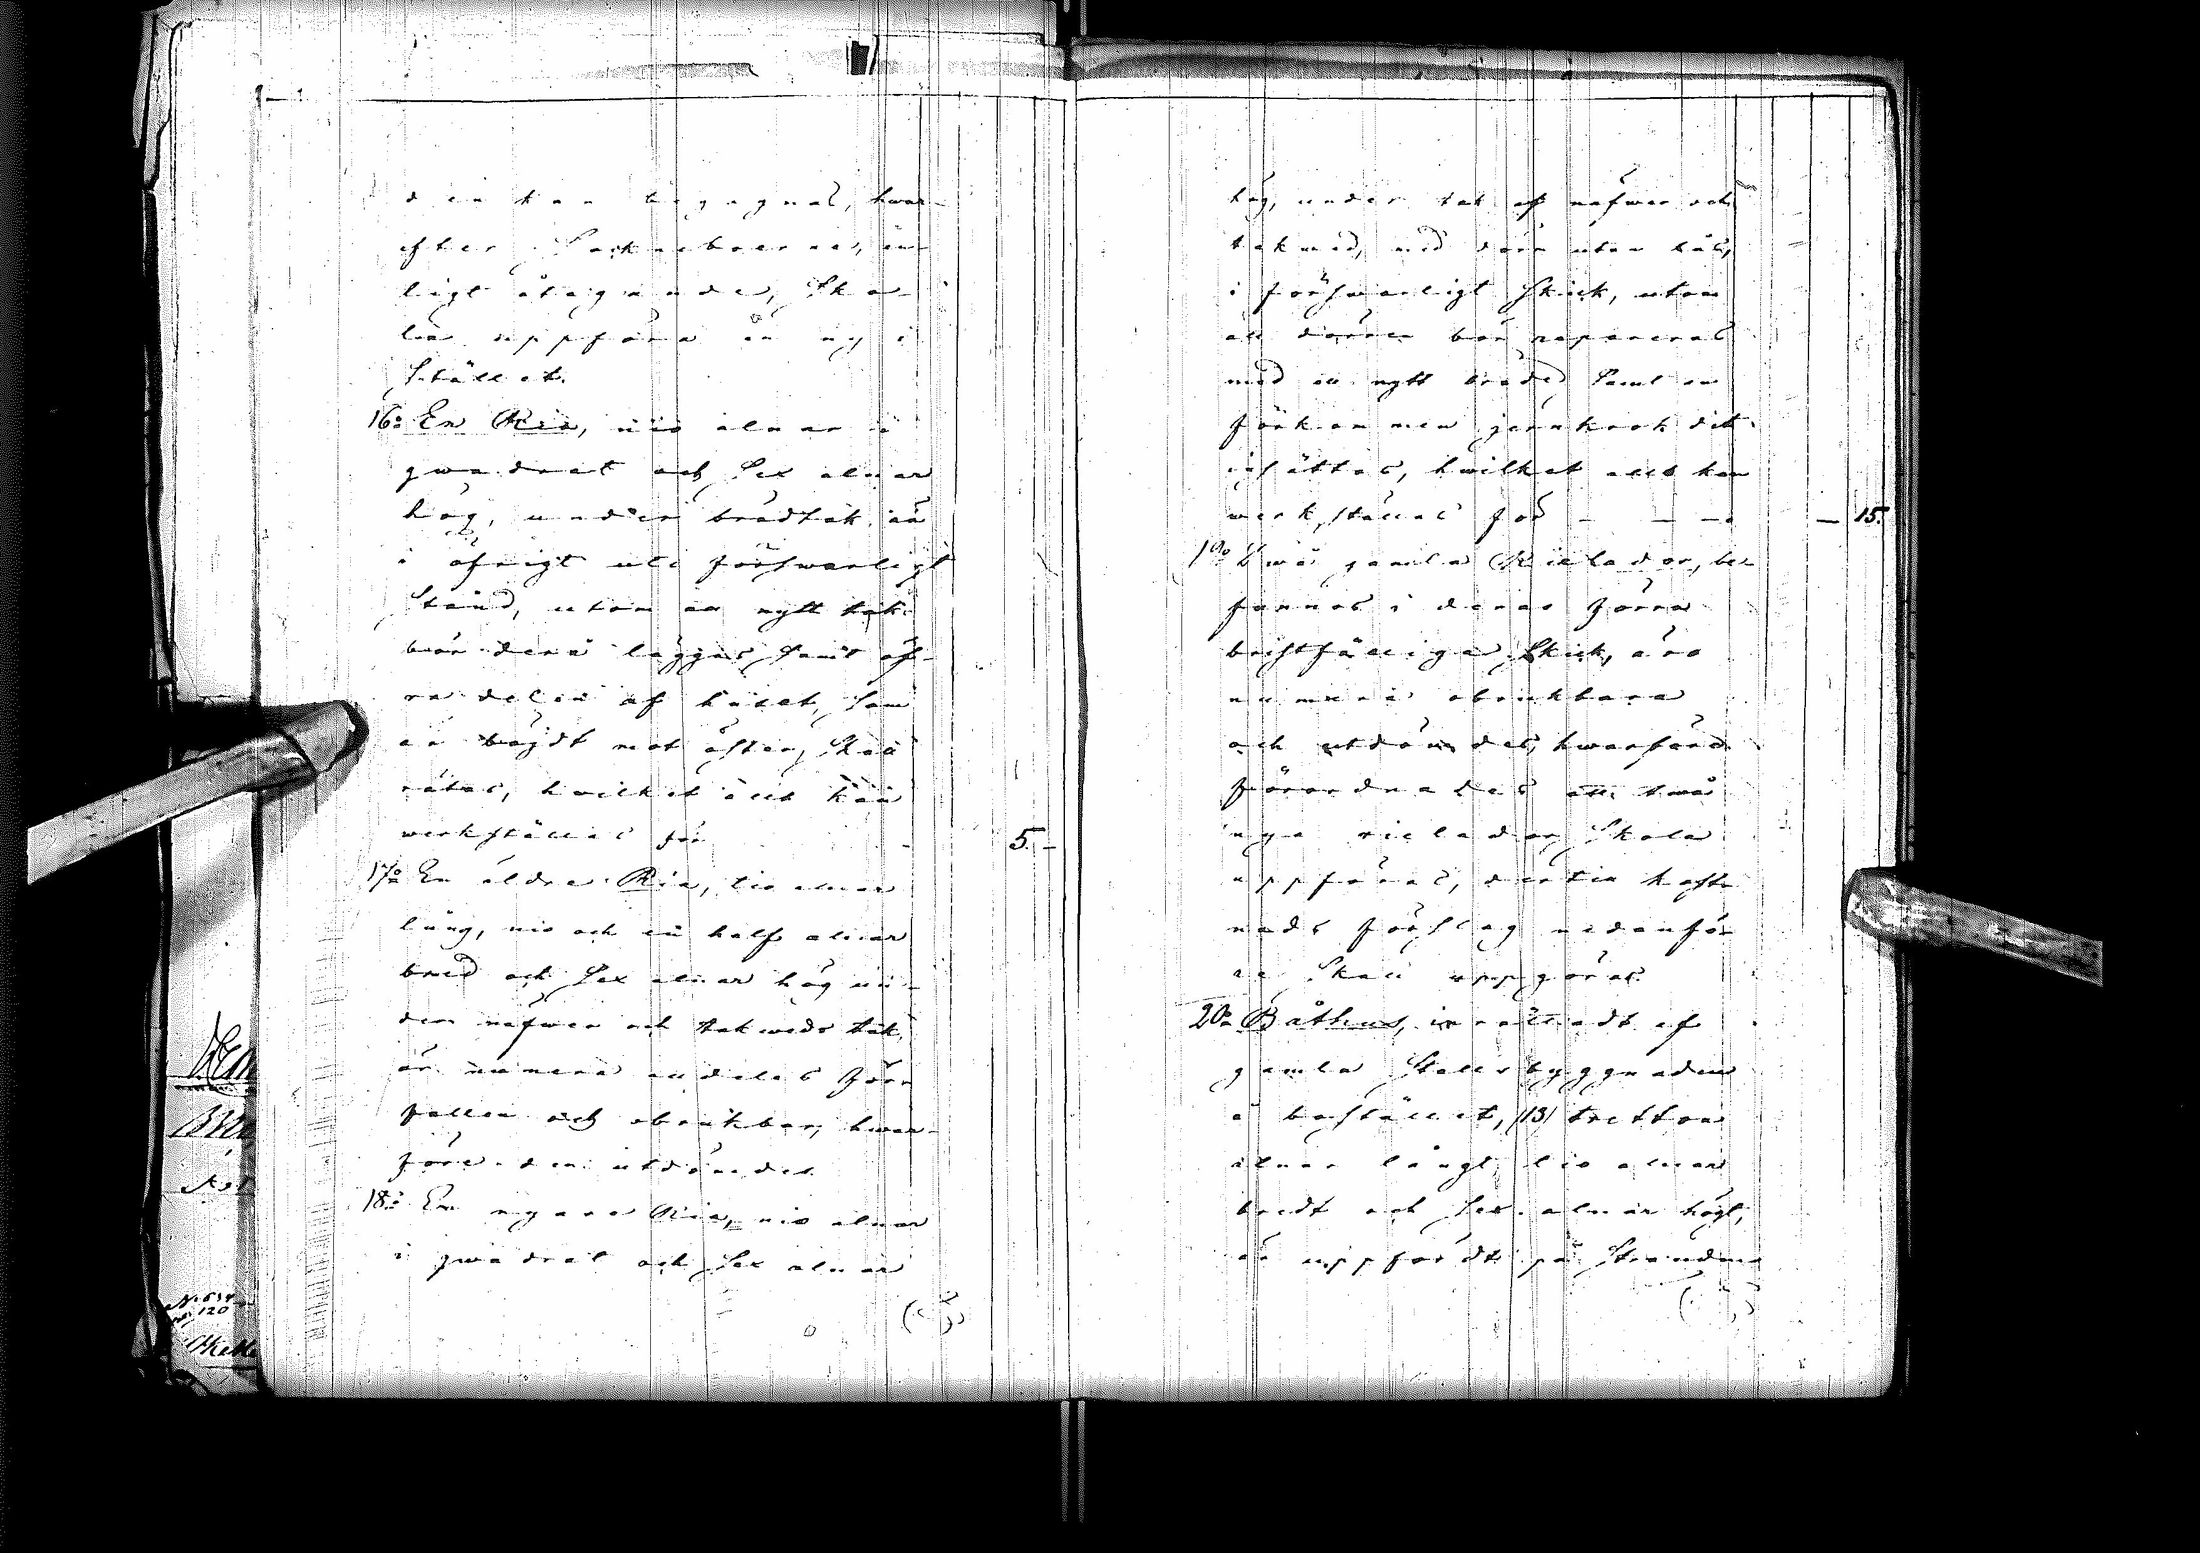 den kan begagnas, hwar-
efter Sockneboerne, en-
ligt åtagande, Ska-
la uppföra en ny i
Stället.
16:o En Ria, nio alnar i
qwadrat och Sex alnar
hög, under brädtak är
i öfrigt uti försvarligt
Stånd, utom en nytt tak
bör derå läggas samt öf-
re delen af huset, Som
är böjdt mot öster, Skall
rätas, hvilket allt kan
werkställas för 5. -
17:o En äldre Ria, tio alnar
lång, nio och en half alnar
bred och Sex alnar hög un-
der näfwer och takweds tak,
är numera alldeles förr
fallen och obrukbar, hwar-
före den utdömdes.
18:o En nyare Ria, nio alnar
i qwadrat och Sex alnar
hög, under tak af näfwer och
takwed, med dörr utan lås,
i försvarligt Skick, utom
att dörren bör repareras
med ett nytt bräde Samt en
förkommen jernkrok dit
insättas, hwilket allt kan
werkställas för - - - - 15.
19:o Twå gamla Rielador, be-
funnos i deras förra
bristfälliga Skick, äro
numera obrukbara
och utdömdes, hwarföre
förordnades att twå
nya rielador Skola
uppföras, dertill kost-
nads förslag nedanför
re Skall uppgöras.
20:o Båthus, inrättadt af
gamla Stallsbyggnaden
å bostället, /13/ tretton
alnar långt, tio alnar
bredt och Sex alnar högt,
är uppfördt på Stranden